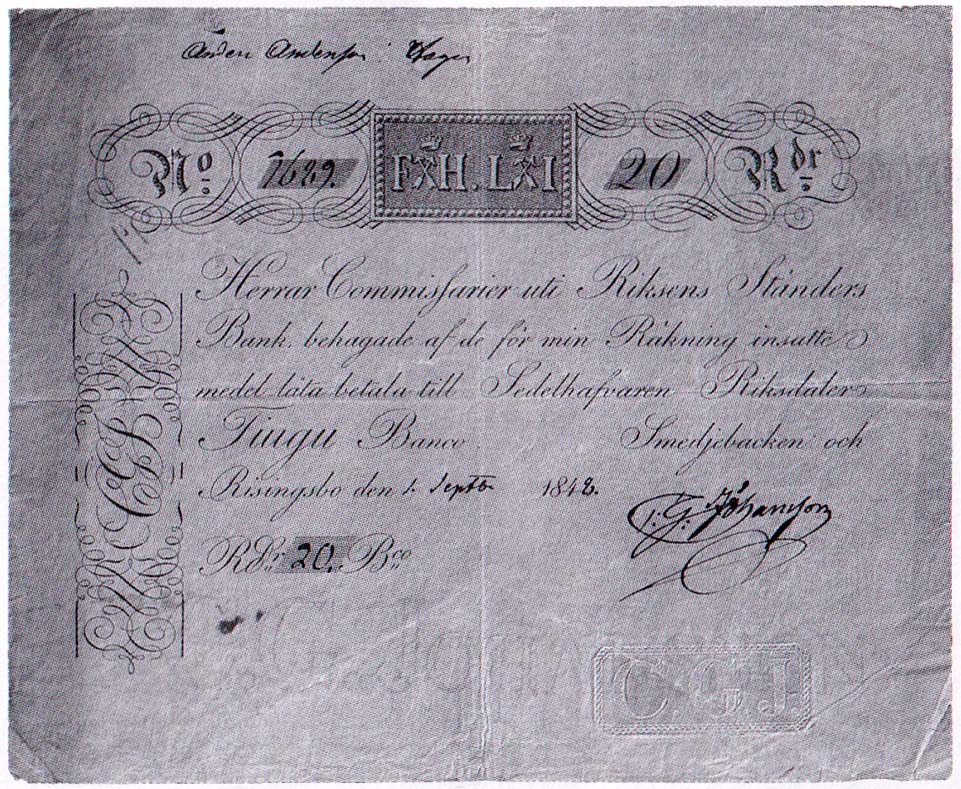 Anders Andersson
No 7689. FXH. LXI 20 Rdr
Herrar Commissarier uti Riksens Ständers
Bank. behagade af de för min Räkning insatte
medel låta betala till Sedelhafvaren Riksdaler
Tiugu Banco. Smedjebacken och
Risingsbo den 1. Septbr 1848.
C. G. Johansson
RDr 20. Bco
C. G. J.